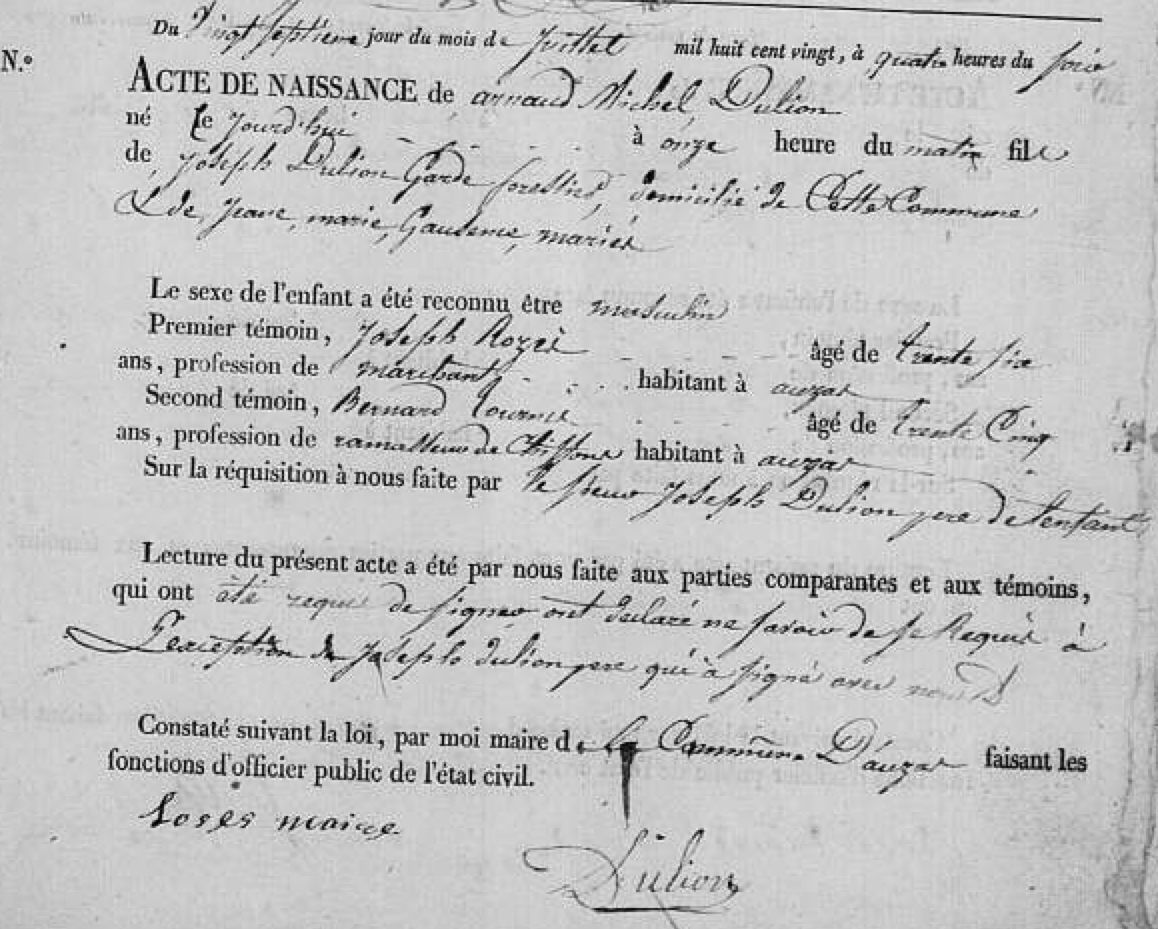 Du Vingt septieme jour du mois de Juillet mil huit cent vingt, à quatre heures du soir
N.º
ACTE DE NAISSANCE de arnaud Michel Dulion
né le Jourd'hui à onze heure du matin fils
de Joseph Dulion Garde forestier, domicilié de Cette Commune
& de Jeane marie Gaudence, mariés
Le sexe de l'enfant a été reconnu être masculin
Premier témoin, Joseph âgé de trente six
ans, profession de marchant habitant à auzat
Second témoin, Bernard âgé de trente Cinq
ans, profession de ramasseur de Chiffons habitant à auzat
Sur la réquisition à nous faite par le sieur Joseph Dulion pere de lenfant
Lecture du présent acte a été par nous faite aux parties comparantes et aux témoins,
qui ont été requis de signer ont declaré ne savoir de se Requis à
L'exception de Joseph dulion pere qui à signé avec nous
Constaté suivant la loi, par moi maire de la Commune D'auzat faisant les
fonctions d'officier public de l'état civil.
maire
Dulion